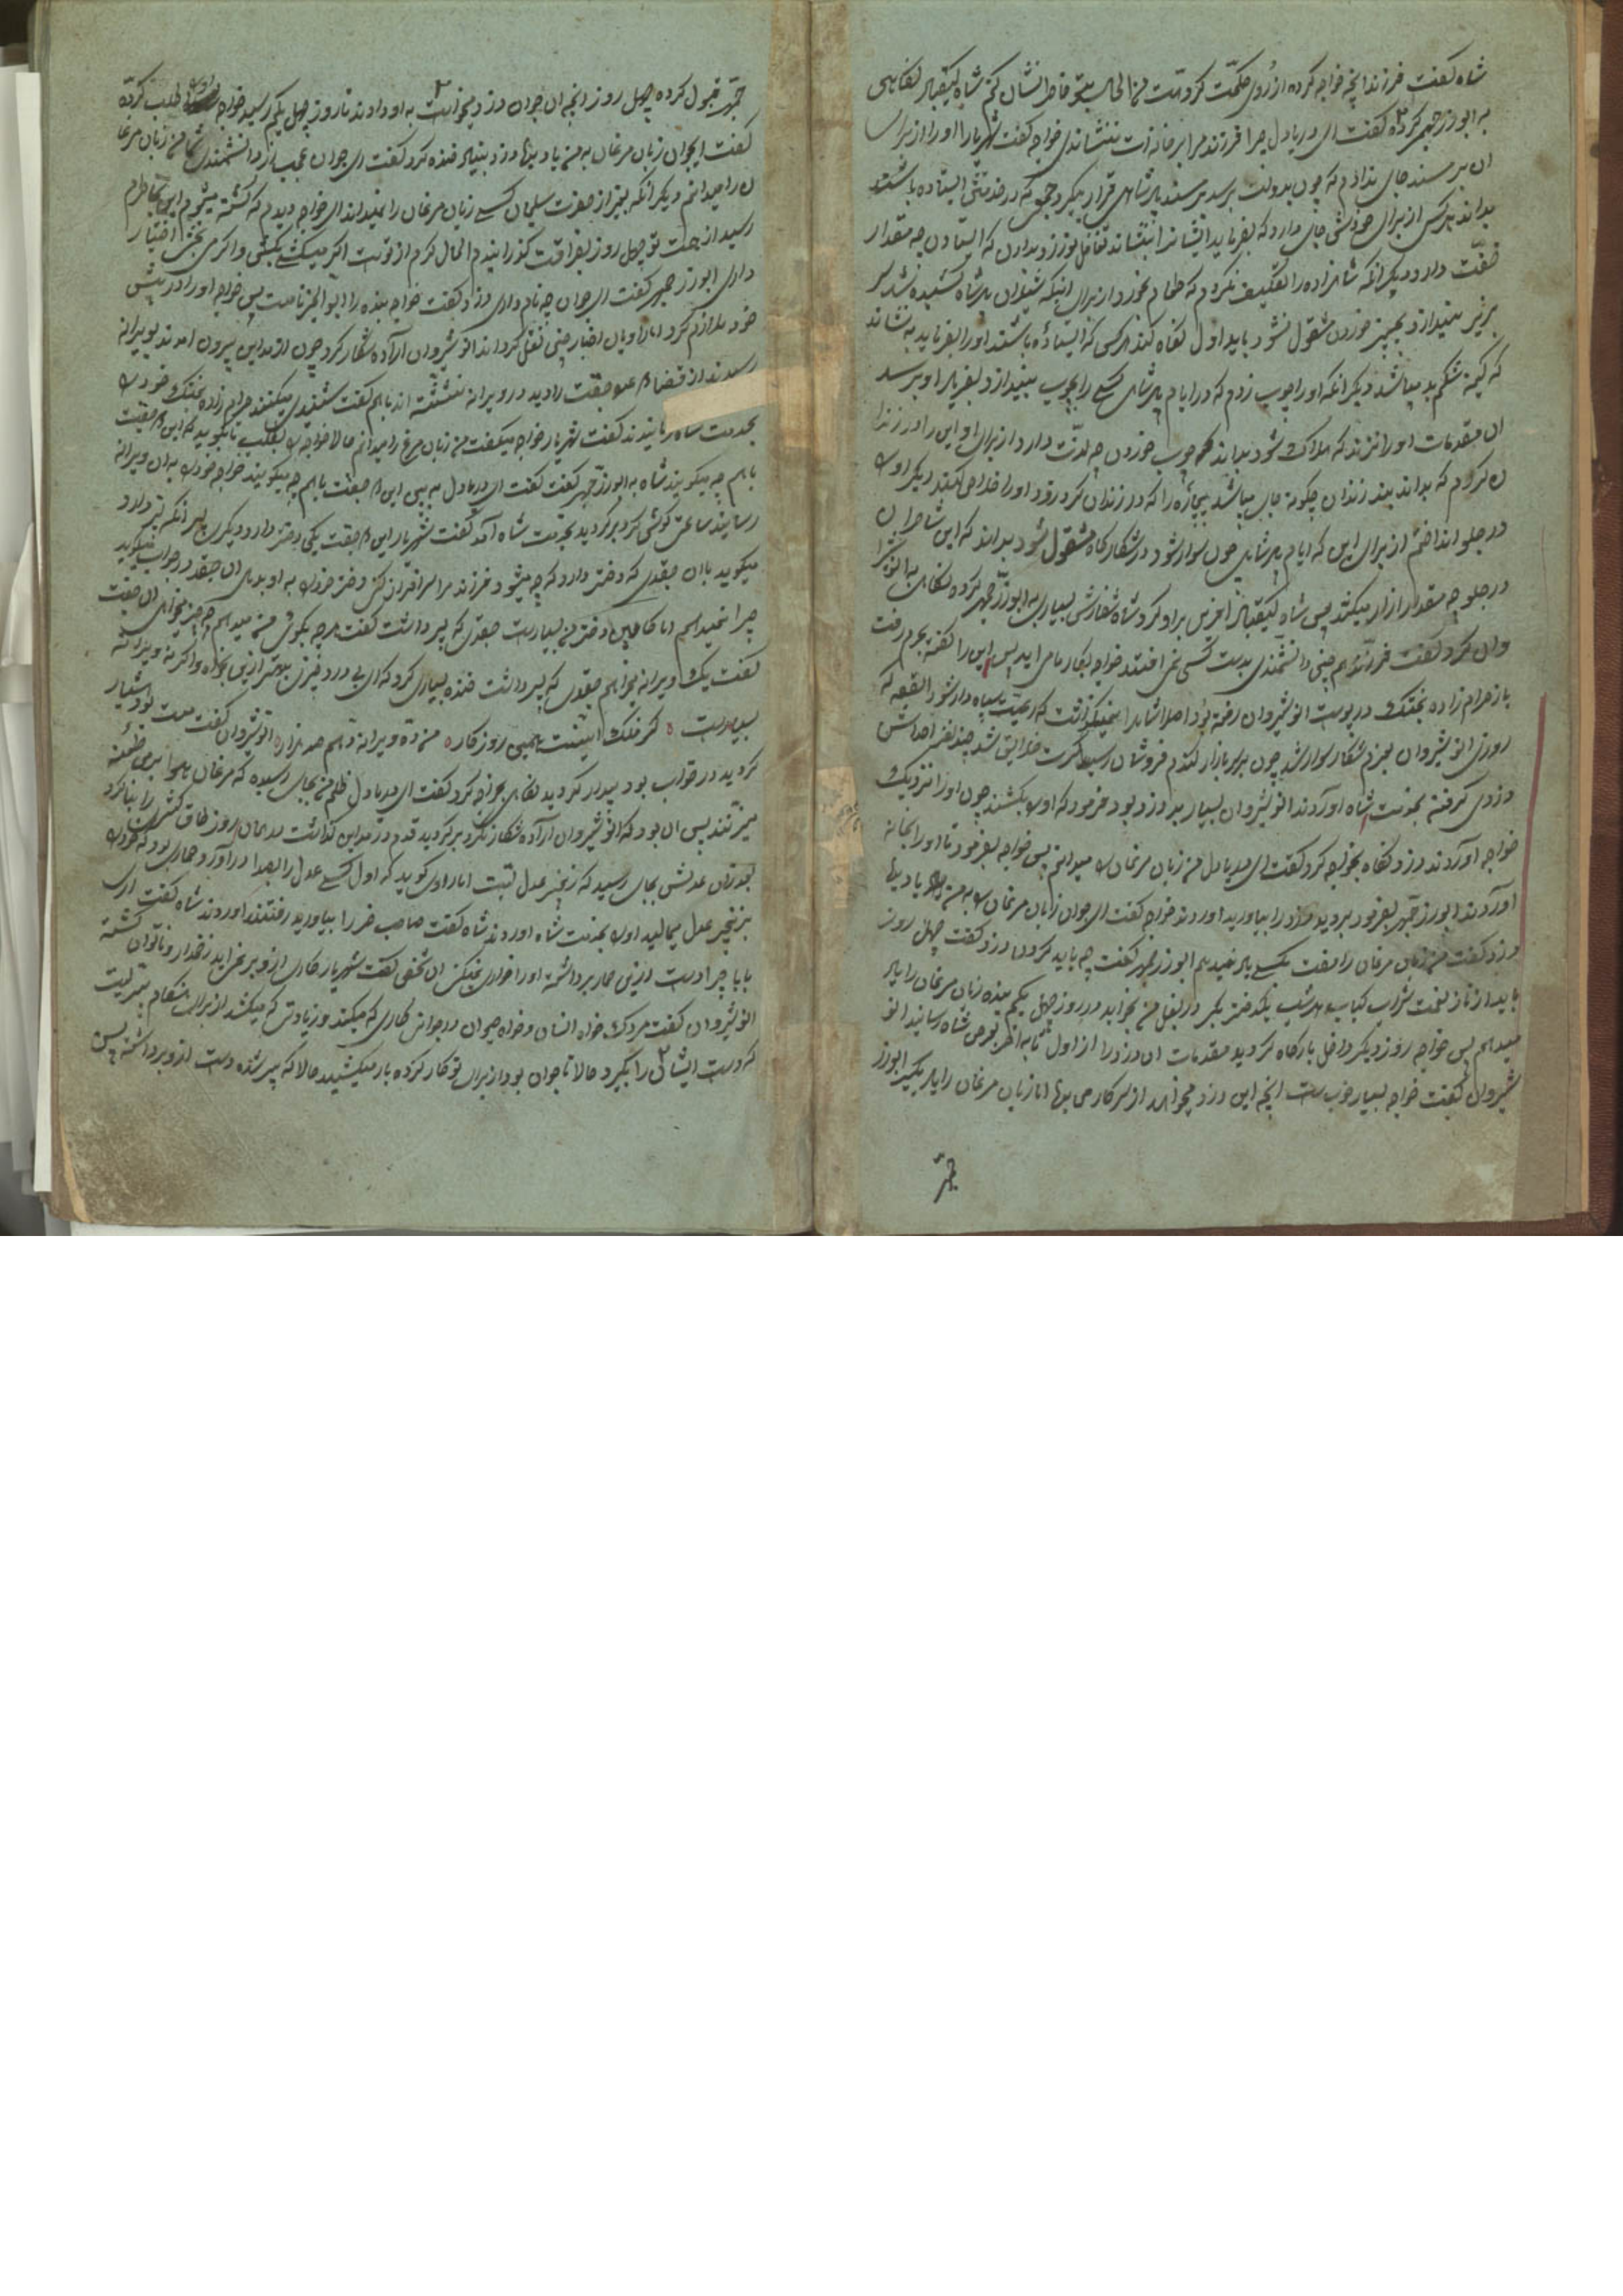 شاه گفت فرزند انچه خواجه کرده از روی حکمت کرده است من الحال بتو خاطر نشان کنم شاه کیقباد نگاهی
به ابوزرجمهر کرده گفت ای دریادل چرا فرزند مرا بر خانه ات ننشاندی خواجه گفت شهریارا او را از برای
ان بر مسند جای ندادم که چون بدولت برسد بر مسند پادشاهی قرار بگیرد جمعی که در خدمتش ایستاده باشند
بداند هر کس از برای خودش جای دارد که بفرماید ایشانرا بنشاند تغافل نورزد و بداند که ایستادن چه مقدار
خفت دارد دیگر انکه شاهزاده را تکلیف نکردم که طعام بخورد از برای اینکه شیلان پادشاه کشیده شد سر
بزیر نیندازد و بچیز خوردن مشغول نشود باید اول نگاه کند هر کسی که ایستاده باشند او را بفرماید بنشاند
که گرسنه شکم بد میباشد دیگر انکه او را چوب زدم که در ایام پادشاهی کسی را بچوب بیندازد و بفریاد او برسد
ان مقدمات او را نزند که هلاک شود بداند که چوب خوردن چه لذت دارد از برای او این را در زندا
ن کردم که بداند بند زندان چگونه جای میباشد بیچاره را که در زندان کرد زود او را خلاص کند دیگر او را
در جلو انداختم از برای این که ایام پادشاهی چون سوار شود در شکارگاه مشغول شود بداند که این شاطران
در جلو چه مقدار ازار میکشند پس شاه کیقباد افرین براو کرد شاه سفارشی بسیاری به ابوزرجمهر کرده نگاهی به انوشیر
وان کرد گفت فرزندم چنین دانشمندی بدست کسی نمی افتد خواجه بکار مامی اید پس این را گفته بحرم رفت
باز حرام زاده بختک در پوست انوشیروان رفته بود اصلا شاه را نمیگذاشت که رعیت سپاه دار شود القصه که
روزی انوشیروان بعزم شکار سوار شد چون بر سر بازار گندم فروشان رسید کثرت خلایق شد چند نفر احداث
دزدی گرفته بخدمت شاه اوردند انوشیروان بسیار بد دزد بود فرمود که او را بکشند چون او را نزدیک
خواجه اوردند دزد نگاه بخواجه کرد گفت ای دریادل من زبان مرغان را میدانم پس خواجه بفرمود تا او را بخانه
اوردند ابوزرجمهر بفرمود بروید دزد را بیاورید اوردند خواجه گفت ای جوان زبان مرغان را به من یاد بده
دزد گفت من زبان مرغان را مفت بکسی یاد نمیدهم ابوزرجمهر گفت چه باید کرد دزد گفت چهل روز
باید از ناز نعمت شراب کباب هر شب یکدختر بکر در بغل من بخوابد در روز چهل یکم بنده زبان مرغان را یاد
میدهم پس خواجه روز دیگر داخل بارگاه گردید مقدمات ان دزد را از اول تا به اخر بعرض شاه رسانید انو
شیروان گفت خواجه بسیار خوب است انچه این دزد میخواهد از سرکار من بده اما زبان مرغان را یاد بگیر ابوزر
جمهر
جمهر قبول کرده چهل روز انچه ان جوان دزد میخواست به او دادند تا روز چهل یکم رسید خواجه او را طلب کرده
گفت ایجوان زبان مرغان به من یاد بده دزد بنیاد خنده کرد گفت ای جوان عجب از دانشمندی شما من زبان مرغا
ن را میدانم دیگر انکه بغیر از حضرت سلیمان کسی زبان مرغان را نمیداند ای خواجه دیدم که کشته میشوم این بخاطرم
رسید از همت تو چهل روز بفراغت گذرانیدم الحال کرم از توست اگر میکشی بکش و اگر می بخشی اختیار
داری ابوزرجمهر گفت ای جوان چه نام داری دزد گفت خواجه بنده را ابوالخیر نامست پس خواجه او را در پیش
خود ملازم کرد اما راویان اخبار چنین نقل کرده اند انوشیروان اراده شکار کرد چون از مداین بیرون امدند بویرانه
رسیدند از قضا دو جغد را دید در ویرانه نشسته اند باهم گفت شنیدی میکنند حرام زاده بختک خود را
بخدمت شاه رسانیدند گفت شهریار خواجه میگفت من زبان مرغ را میدانم حالا خواجه را بطلب تا بگوید که این دو جغد
باهم چه میگویند شاه به ابوزرجمهر گفت گفت ای دریادل به بین این دو جغد باهم چه میگویند خواجه خود را به ان ویرانه
رسانید ساعتی گوشی کرد برگردید بخدمت شاه امد گفت شهریار این دو جغد یکی دختر دارد دیگری پسر انکه پسر دارد
میگوید با ان جغدی که دختر دارد که چه میشود فرزند مرا سرافراز کنی دختر خود را به او بدهی ان جغد در جواب میگوید
چرا نمیدهم اما کابین دختر من بسیارست جغدی که پسر داشت گفت هرچه بگوئی من میدهم چه چیز میخواهی ان جغد
گفت یک ویرانه میخواهم جغدی که پسر داشت خنده بسیاری کرد که ای برادر چیزی بهتر ازین بخواه واگرنه ویرانه
بسیارست ه گر ملک اینست همین روزگار ه من ده ویرانه دهم صد هزار ه انوشیروان گفت مست بود هشیار
گردید در خواب بود بیدار گردید نگاهی بخواجه کرد گفت ای دریادل ظلم من بجای رسیده که مرغان هوا برمن طعنه
میزنند پس ان بود که انوشیروان اراده شکار نکرد برگردید قدم در مداین گذاشت در همان روز طاق کسری را بنا کرد
بعد ازان عدلش بجای رسید که زنجیر عدل بست اما راوی گوید که اول کسی عدل را بصدا دراورد حماری بود که خود را
بزنجیر عدل میمالید او را بخدمت شاه اوردند شاه گفت صاحب خر را بیاورید رفتند اوردند شاه گفت ای
بابا چرا دست ازین حمار برداشته او را خوراک نمیکنی ان شخص گفت شهریار کاری ازو بر نمی اید زخمدار و ناتوان گشته
انوشیروان گفت مردک خواه انسان و خواه حیوان در جوانی کاری که میکند و زیادتی که میکشد از برای هنگام پیریست
که دست ایشان را بگیرد حالا تا جوان بود از برای تو کار کرده بار میکشید حالا که پیر شده دست ازو برداشته پس